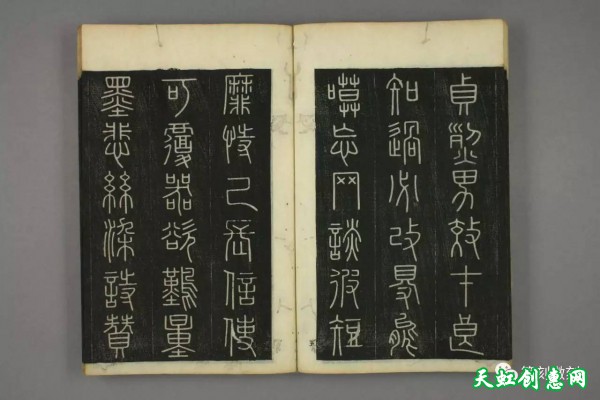 貞潔男效才良
知過必改得能
莫忘罔談彼短
靡恃己長信使
可覆器欲難量
墨悲絲染詩贊
天虹创惠网